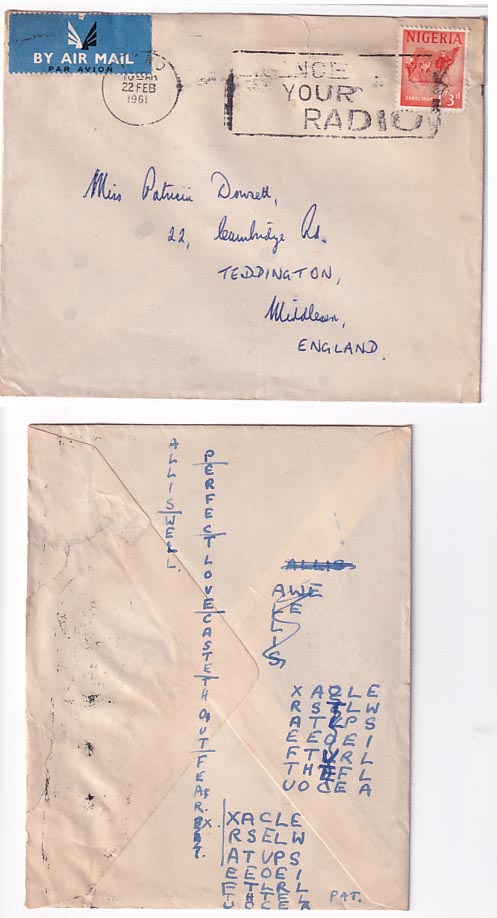 BY AIR MAIL
PAR AVION
22 FEB
1961
YOUR
RADIO
NIGERIA
CAMEL TRAIN
1/3d
Miss Patricia Dowsett,
22, Cambridge Rd.
TEDDINGTON,
Middlesex,
ENGLAND.
ALL IS WELL.
PERFECT LOVE CASTETH OUT FEAR.
ALLIS
AWE
LE
LL
IS
XACLE
RSTLW
ATLPS
EEOEI
FTVRL
THEFL
UOCEA
XACLE
RSELW
ATUPS
EEOEI
FTLRL
THTEL
UOCEA
PAT.